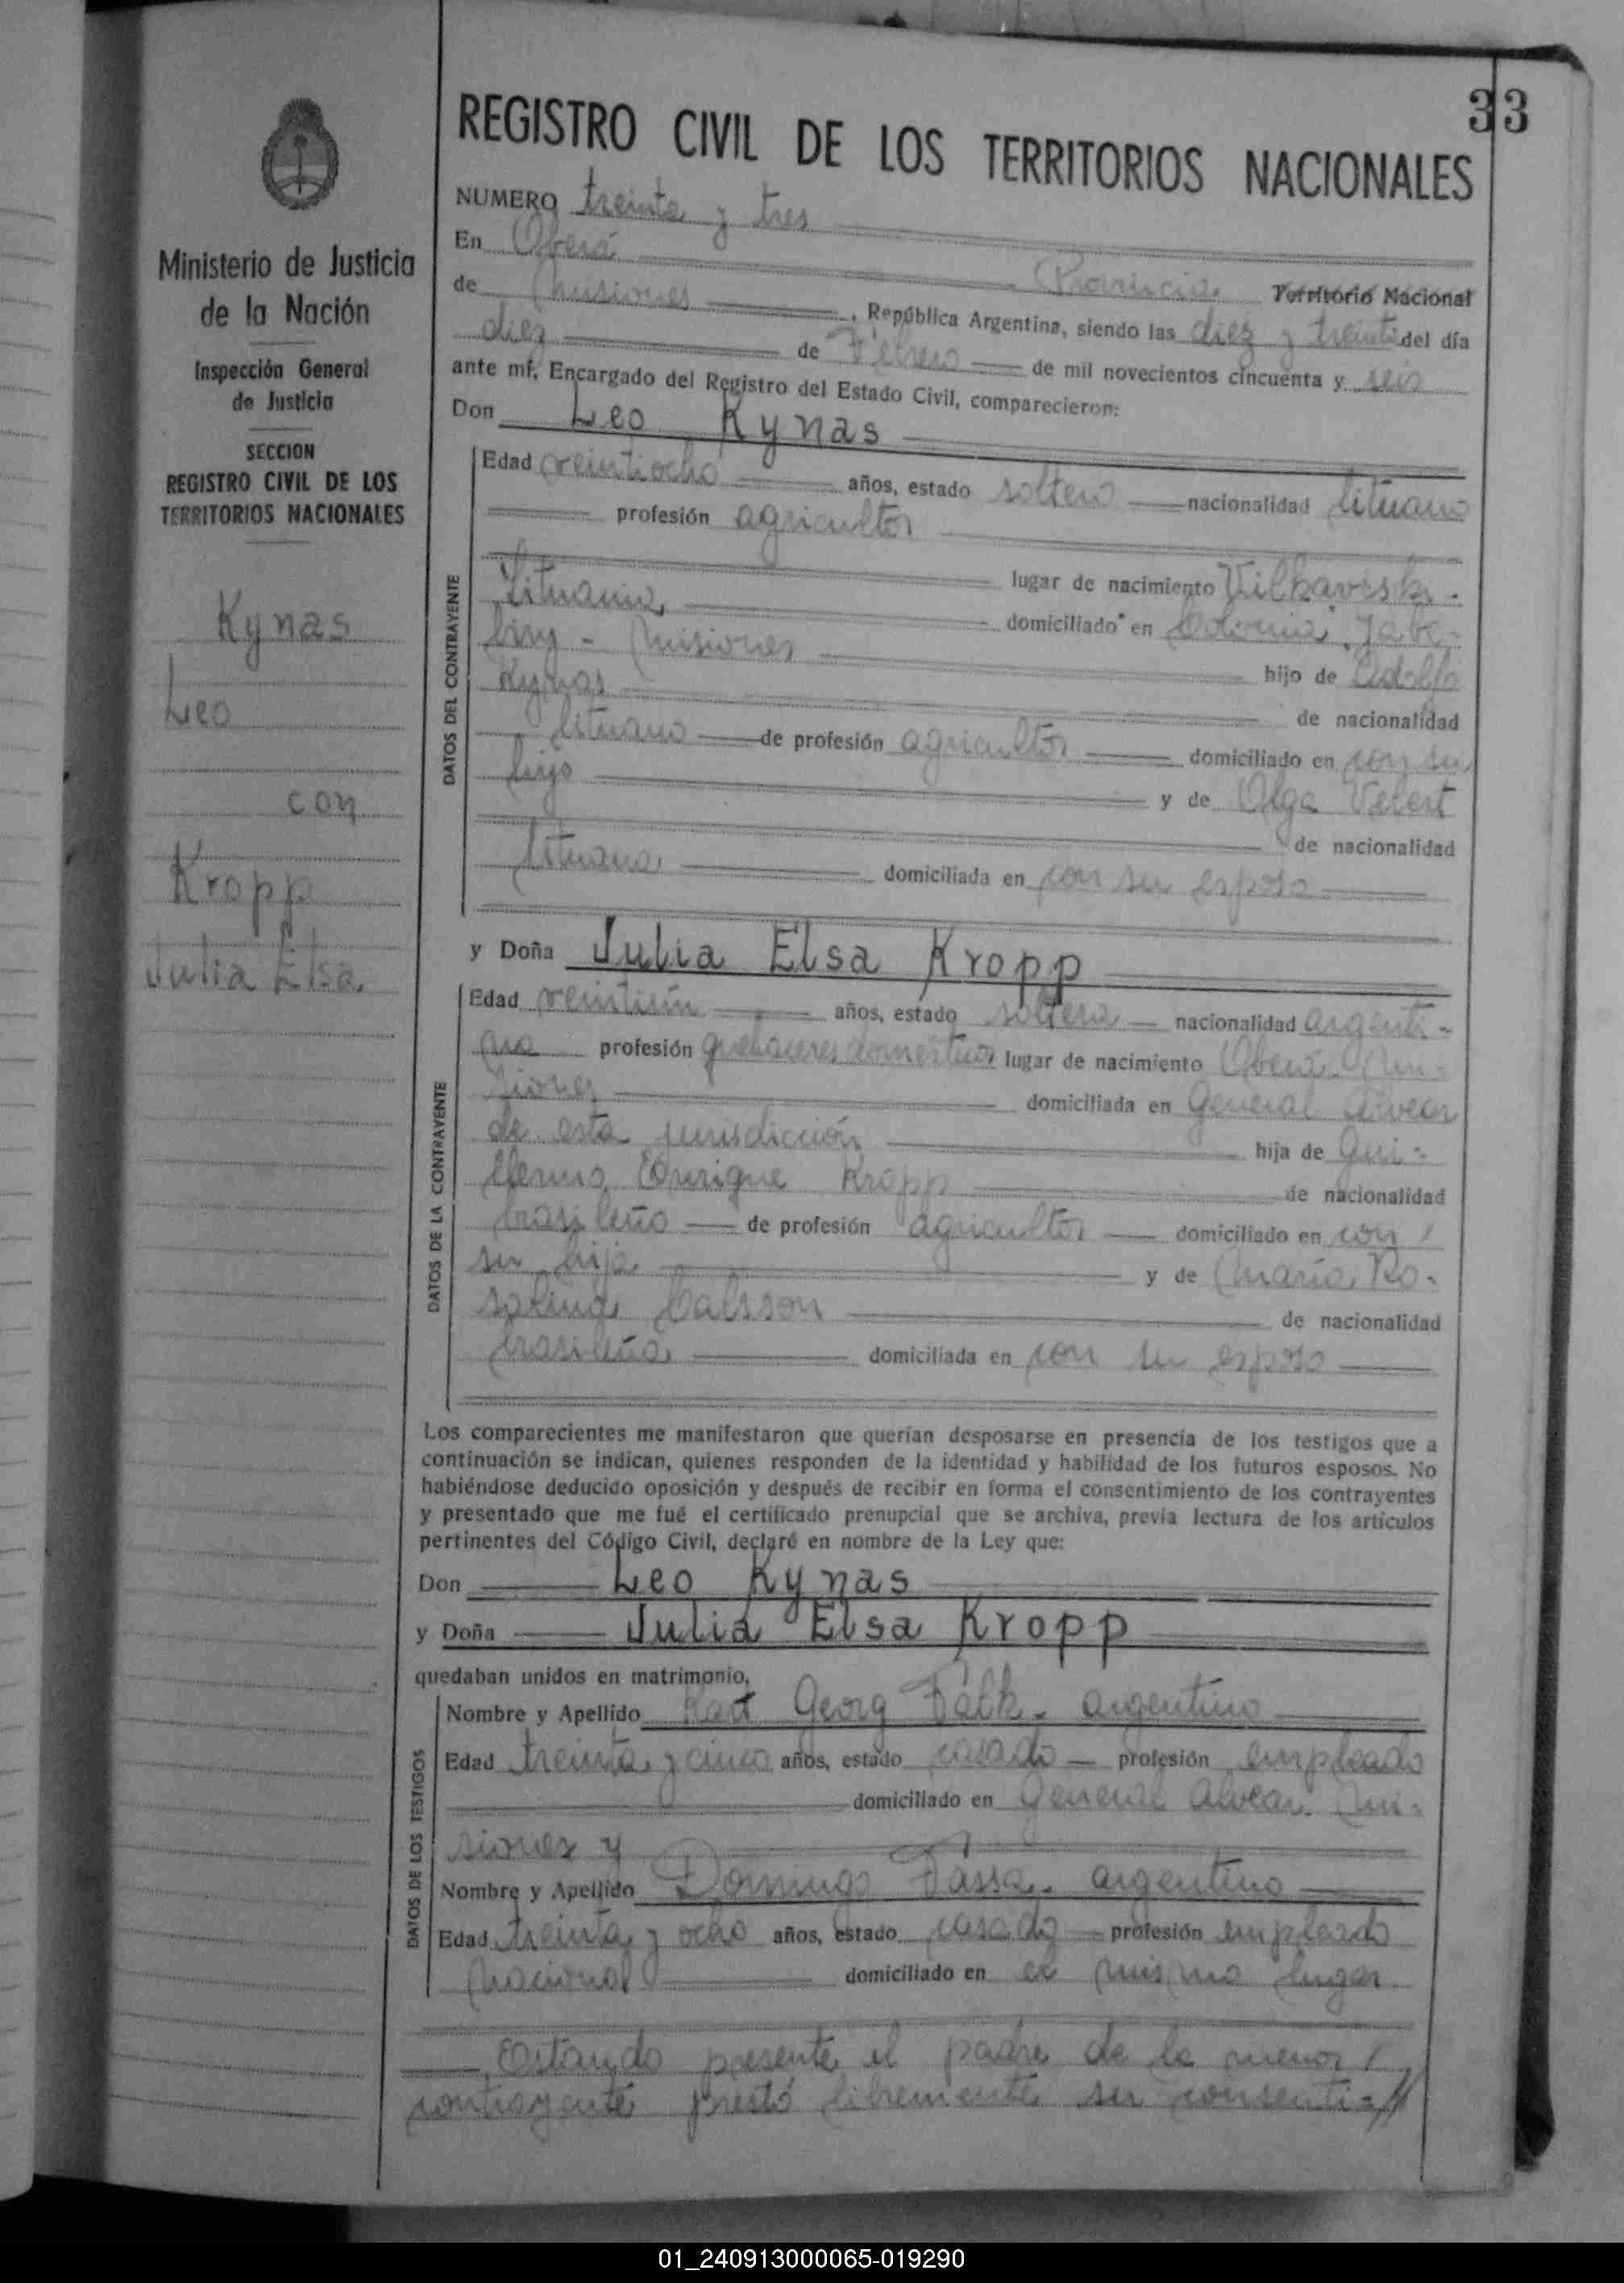 33
REGISTRO CIVIL DE LOS TERRITORIOS NACIONALES
Ministerio de Justicia
de la Nación
Inspección General
de Justicia
SECCION
REGISTRO CIVIL DE LOS
TERRITORIOS NACIONALES
Kynas
Leo
con
Kropp
Julia Elsa
NUMERO treinta y tres
En Oberá Provincia Territorio Nacional
de Misiones, República Argentina, siendo las diez y treinta del día
diez de Febrero de mil novecientos cincuenta y seis
ante mí, Encargado del Registro del Estado Civil, comparecieron:
Don Leo Kynas
DATOS DEL CONTRAYENTE
Edad veintiocho años, estado soltero nacionalidad lituano
profesión agricultor
lugar de nacimiento Vilkaviski-
Lituania domiciliado en Colonia Yabe-
biry - Misiones hijo de Adolfo
Kynas de nacionalidad
lituano de profesión agricultor domiciliado en con su
hijo y de Olga Vebert
de nacionalidad
lituana domiciliada en con su esposo
y Doña Julia Elsa Kropp
DATOS DE LA CONTRAYENTE
Edad veintiún años, estado soltera nacionalidad argenti-
na profesión quehaceres domésticos lugar de nacimiento Oberá Mi-
siones domiciliada en General Alvear
de esta jurisdicción hija de Gui-
llermo Enrique Kropp de nacionalidad
brasileño de profesión agricultor domiciliado en con /
su hija y de María Ro-
salina Calsson de nacionalidad
brasileña domiciliada en con su esposo
Los comparecientes me manifestaron que querían desposarse en presencia de los testigos que a
continuación se indican, quienes responden de la identidad y habilidad de los futuros esposos. No
habiéndose deducido oposición y después de recibir en forma el consentimiento de los contrayentes
y presentado que me fué el certificado prenupcial que se archiva, previa lectura de los artículos
pertinentes del Código Civil, declaré en nombre de la Ley que:
Don Leo Kynas
y Doña Julia Elsa Kropp
quedaban unidos en matrimonio.
DATOS DE LOS TESTIGOS
Nombre y Apellido Georg Falk - argentino
Edad treinta y cinco años, estado casado profesión empleado
domiciliado en General Alvear Mi-
siones y
Nombre y Apellido Domingo Fassa - argentino
Edad treinta y ocho años, estado casado profesión empleado
nacional domiciliado en el mismo lugar
Estando presente el padre de la menor /
contrayente prestó libremente su consenti-//
01_240913000065-019290